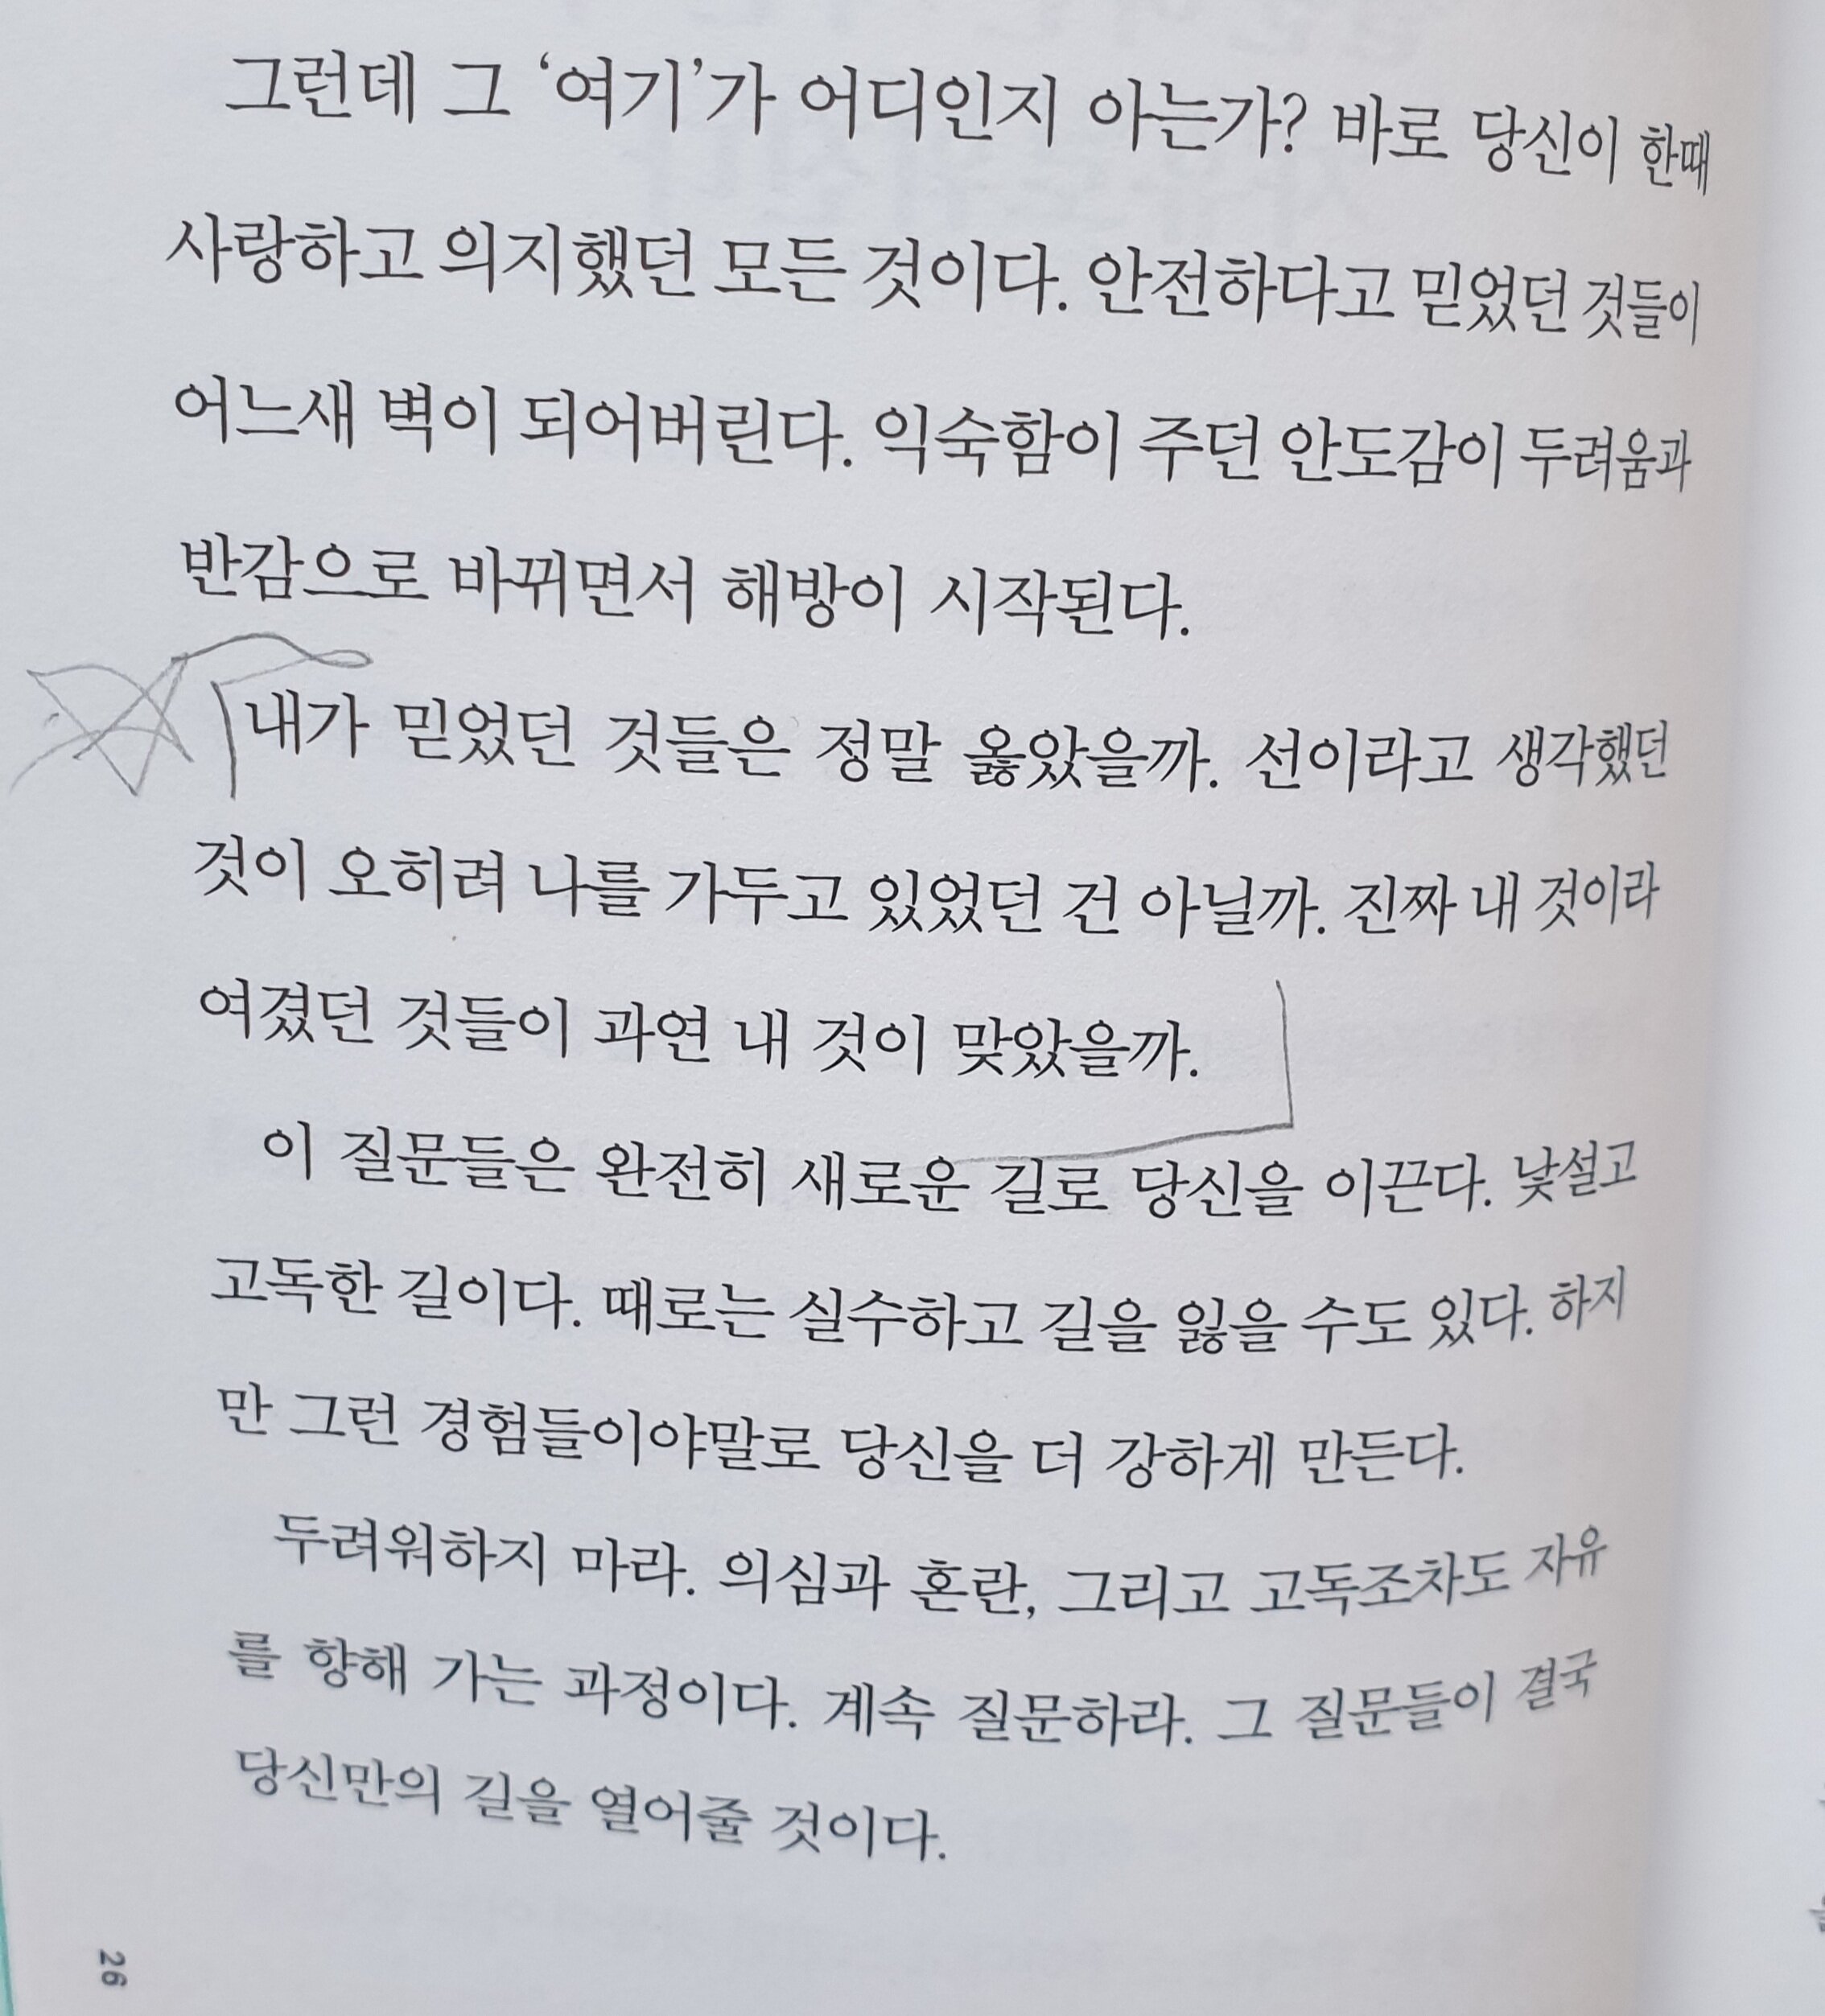 그런데 그 ‘여기’가 어디인지 아는가? 바로 당신이 한때
사랑하고 의지했던 모든 것이다. 안전하다고 믿었던 것들이
어느새 벽이 되어버린다. 익숙함이 주던 안도감이 두려움과
반감으로 바뀌면서 해방이 시작된다.
내가 믿었던 것들은 정말 옳았을까. 선이라고 생각했던
것이 오히려 나를 가두고 있었던 건 아닐까. 진짜 내 것이라
여겼던 것들이 과연 내 것이 맞았을까.
이 질문들은 완전히 새로운 길로 당신을 이끈다. 낯설고
고독한 길이다. 때로는 실수하고 길을 잃을 수도 있다. 하지
만 그런 경험들이야말로 당신을 더 강하게 만든다.
두려워하지 마라. 의심과 혼란, 그리고 고독조차도 자유
를 향해 가는 과정이다. 계속 질문하라. 그 질문들이 결국
당신만의 길을 열어줄 것이다.
26